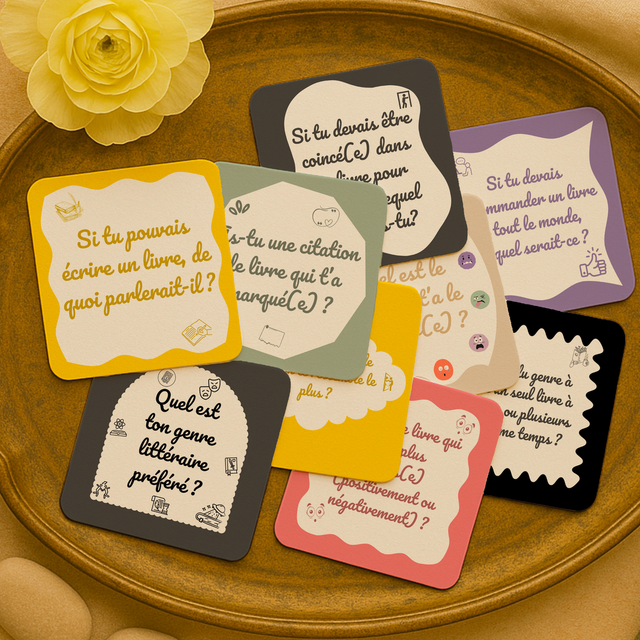 Si tu devais être
coincé(e) dans
livre pour
Si tu devais
un livre
tout le monde,
serait-ce ?
Si tu pouvais
écrire un livre, de
quoi parlerait-il ?
une citation
livre qui t'a
marqué(e) ?
est le
t'a le
plus ?
genre à
seul livre à
ou plusieurs
temps ?
Quel est
ton genre
littéraire
préféré ?
livre qui
plus
(positivement ou
négativement) ?